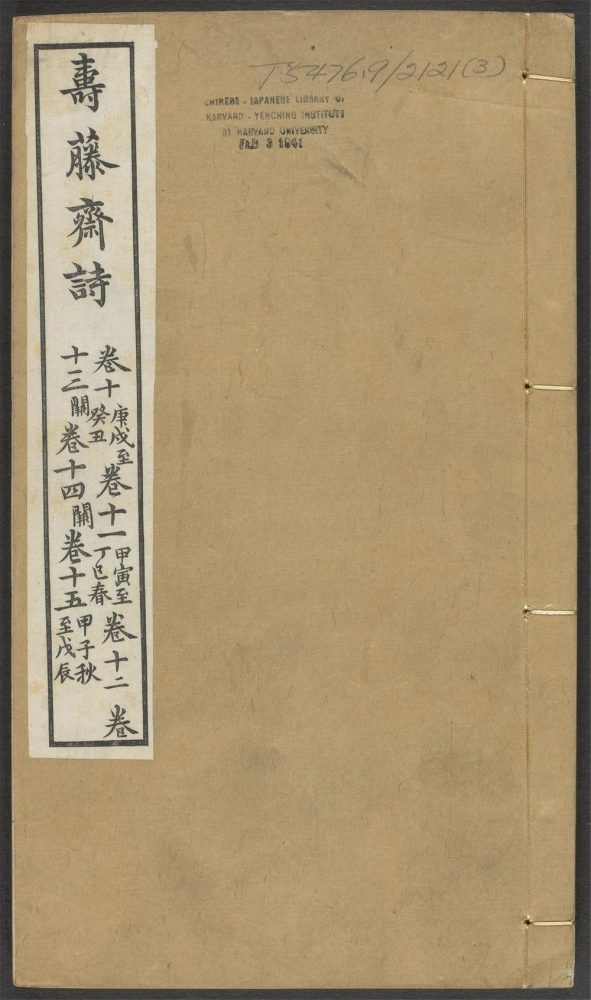 壽藤齋詩
卷十庚戌至癸丑卷十一甲寅至丁巳春卷十二卷
十三闕卷十四闕卷十五甲子秋至戊辰
T5476.9/2121(3)
CHINESE - JAPANESE LIBRARY OF
HARVARD - YENCHING INSTITUTE
AT HARVARD UNIVERSITY
FEB 3 1941